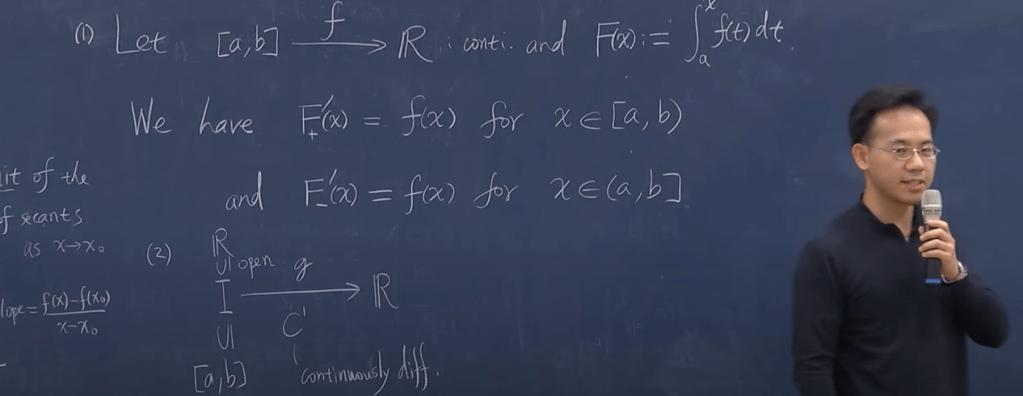 (1) Let [a,b] —f→ ℝ : conti. and F(x) := ∫ₐˣ f(t) dt.
We have F₊′(x) = f(x) for x ∈ [a,b)
and F₋′(x) = f(x) for x ∈ (a,b]
of the
as x→x₀
= f(x)−f(x₀) / x−x₀
(2) ℝ
∪| open g
I ⟶ ℝ
∪| C¹
[a,b] continuously diff.